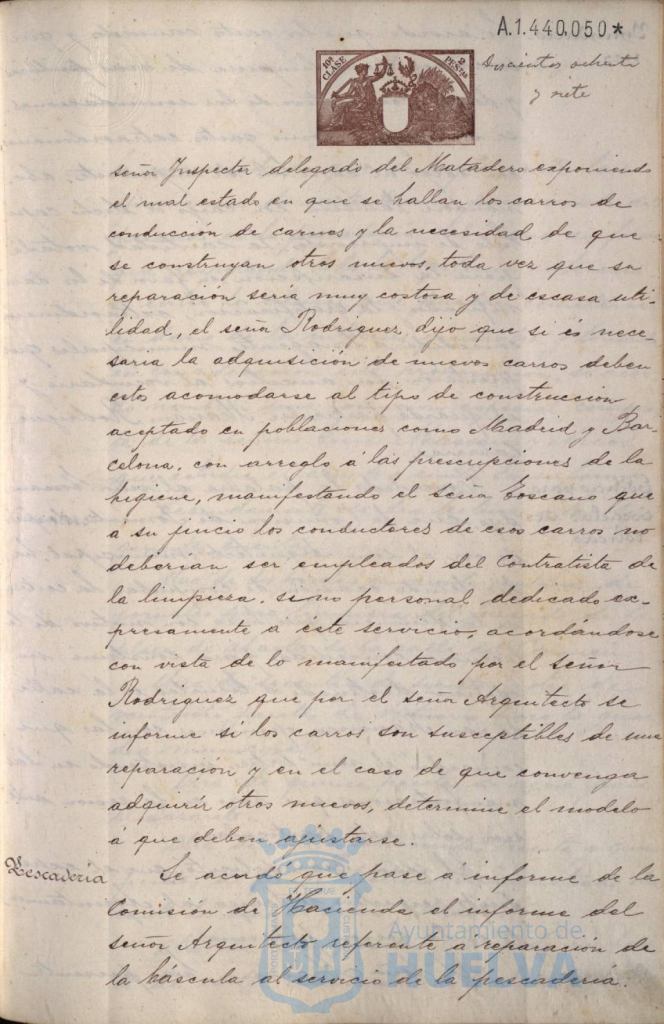 A.1.440,050*
10ª CLASE
2 PESETAS
Doscientos ochenta
y siete
señor Inspector delegado del Matadero exponiendo
el mal estado en que se hallan los carros de
conducción de carnes y la necesidad de que
se construyan otros nuevos, toda vez que su
reparación seria muy costosa y de escasa uti-
lidad, el señor Rodriguez dijo que si és nece-
saria la adquisición de nuevos carros deben
estos acomodarse al tipo de construccion
aceptado en poblaciones como Madrid y Bar-
celona, con arreglo á las prescripciones de la
higiene, manifestando el señor Toscano que
á su juicio los conductores de esos carros no
deberian ser empleados del Contratista de
la limpieza, sino personal dedicado ex-
presamente á éste servicio, acordándose
con vista de lo manifestado por el señor
Rodriguez que por el señor Arquitecto se
informe si los carros son susceptibles de una
reparación y en el caso de que convenga
adquirir otros nuevos, determine el modelo
á que deben ajustarse.
Pescadería Se acordó que pase á informe de la
Comisión de Hacienda el informe del
señor Arquitecto referente á reparación de
la báscula al servicio de la pescaderia.
Ayuntamiento de
HUELVA